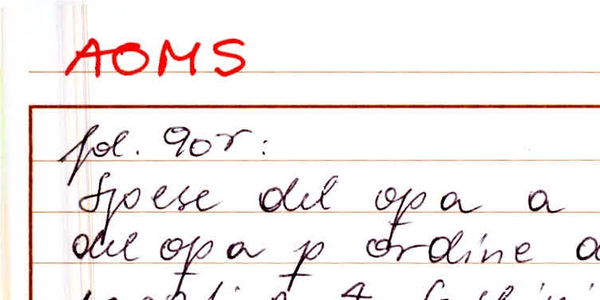 AOMS
fol. 90r:
Spese del opa a
del opa p ordine